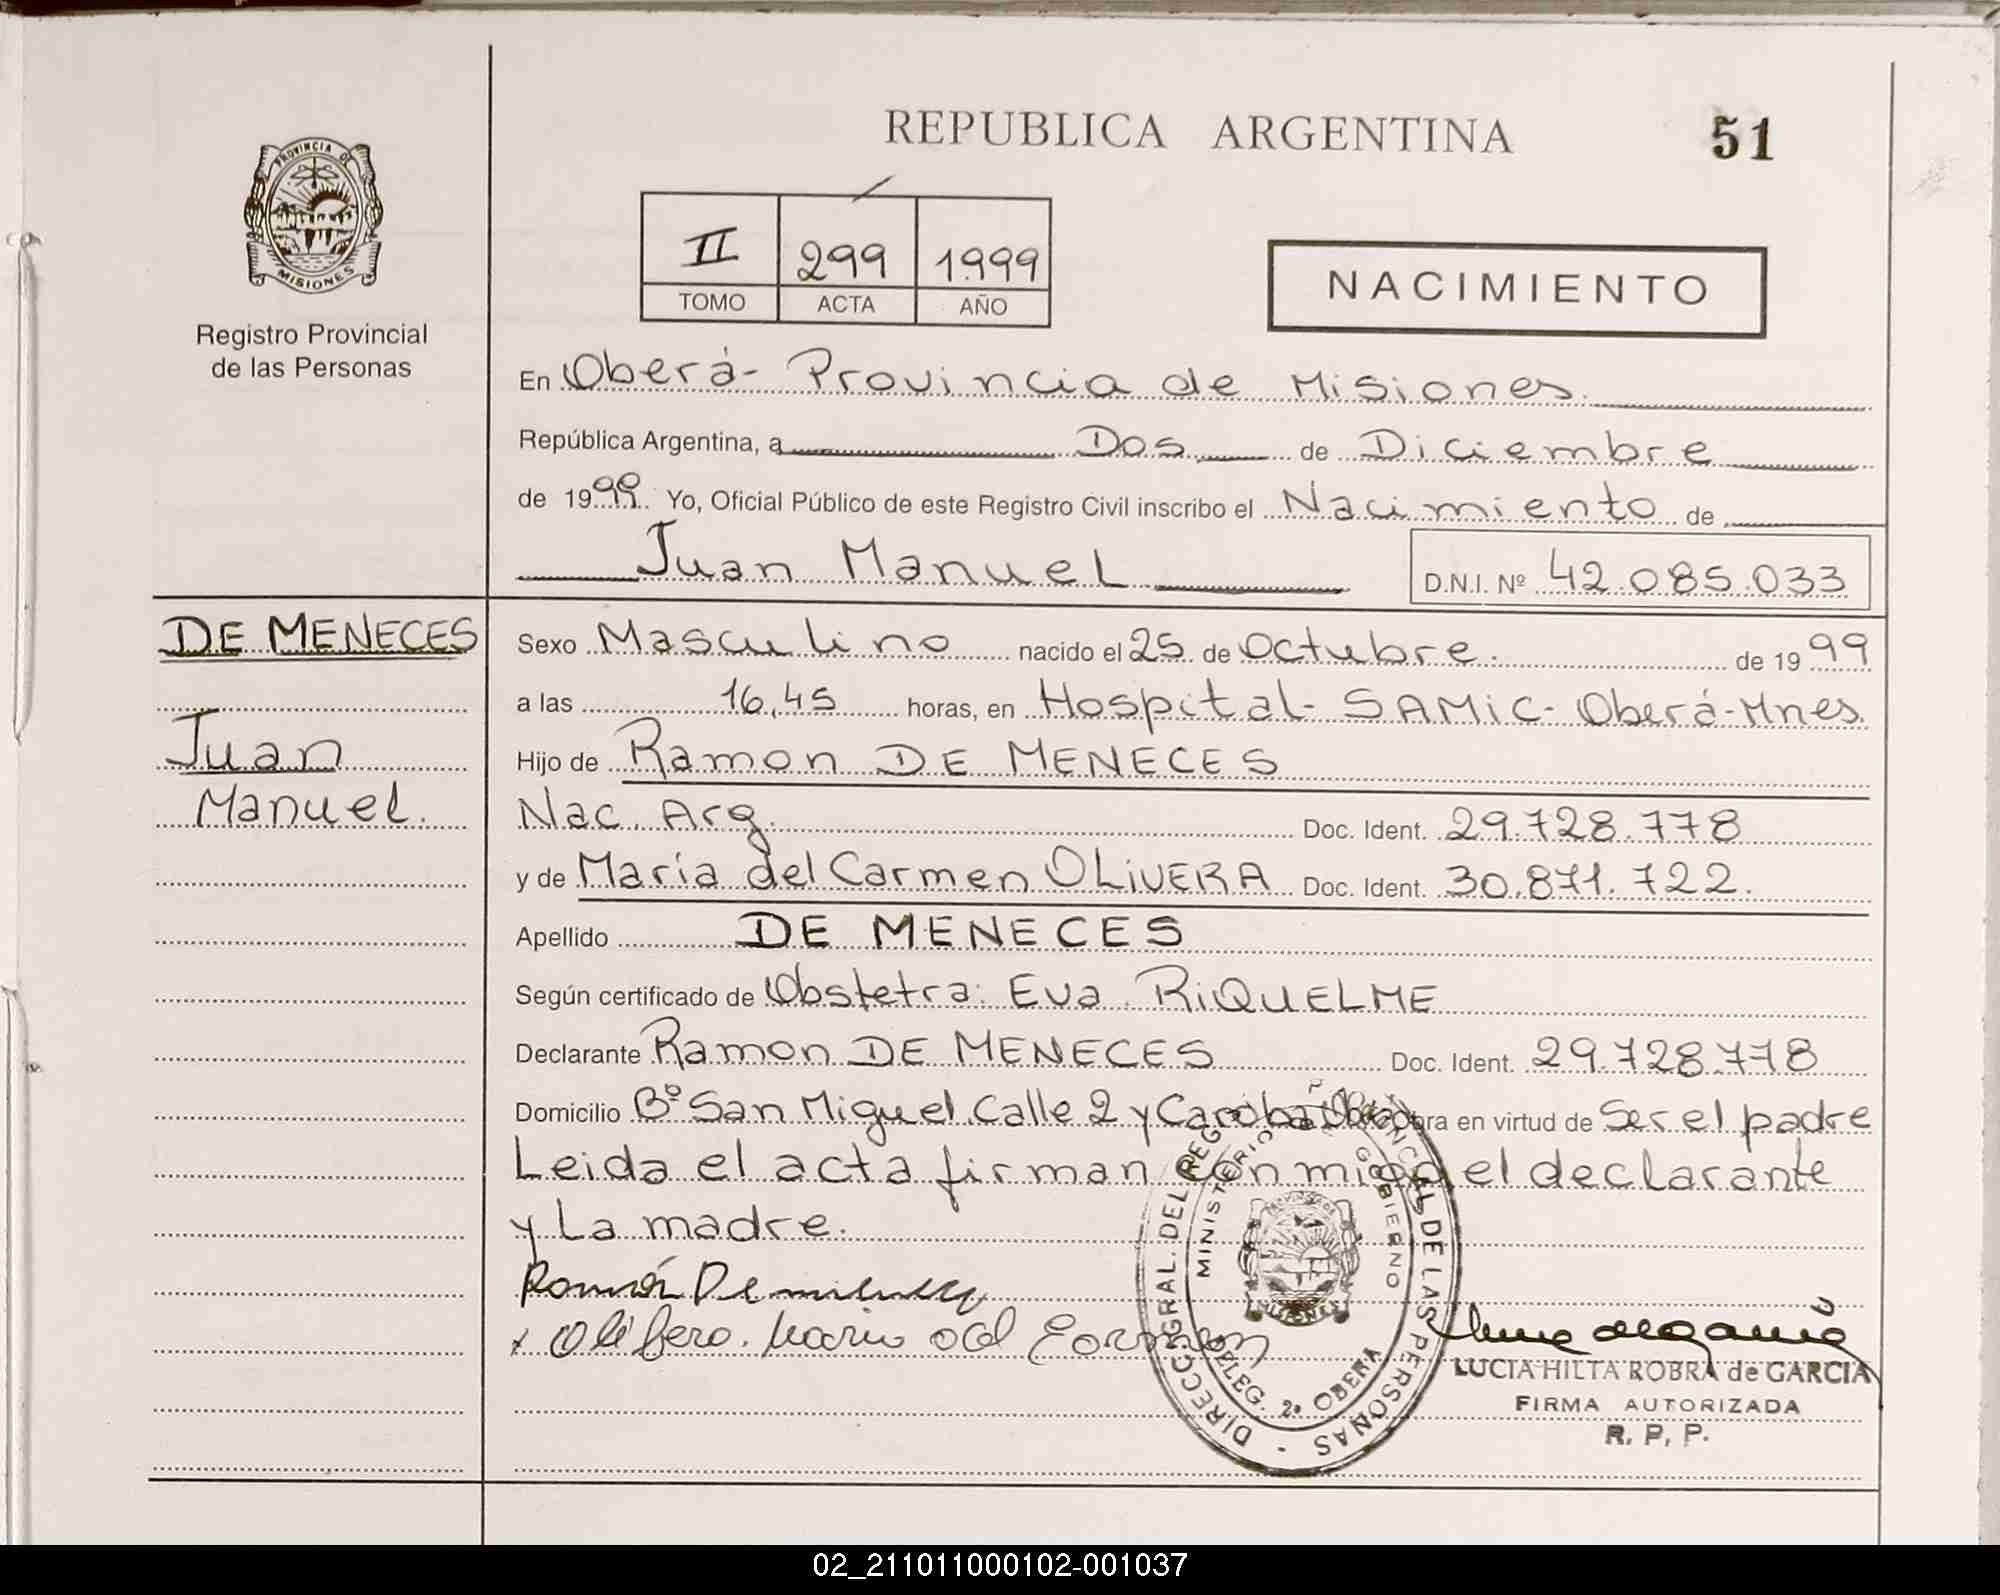 REPUBLICA ARGENTINA
51
PROVINCIA DE
MISIONES
Registro Provincial
de las Personas
II 299 1999
TOMO ACTA AÑO
NACIMIENTO
En Oberá - Provincia de Misiones.
República Argentina, a Dos de Diciembre
de 1999. Yo, Oficial Público de este Registro Civil inscribo el Nacimiento de
Juan Manuel D.N.I. Nº 42.085.033
DE MENECES
Juan
Manuel.
Sexo Masculino nacido el 25 de Octubre. de 1999
a las 16,45 horas, en Hospital - SAMiC - Oberá - Mnes.
Hijo de Ramon DE MENECES
Nac. Arg. Doc. Ident. 29.728.778
y de María del Carmen OLiVERA Doc. Ident. 30.871.722.
Apellido DE MENECES
Según certificado de Obstetra: Eva RiQUELME
Declarante Ramon DE MENECES Doc. Ident. 29.728.778
Domicilio Bº San Miguel. Calle 2 y obra en virtud de Ser el padre
Leida el acta firman con migo el declarante
y La madre.
Ramón
DIRECC. GRAL. DEL REG. PROVINCIAL DE LAS PERSONAS
MINISTERIO GOBIERNO
MISIONES
DELEG. 2ª OBERA
LUCIA HILTA ROBRA de GARCIA
FIRMA AUTORIZADA
R. P. P.
02_211011000102-001037